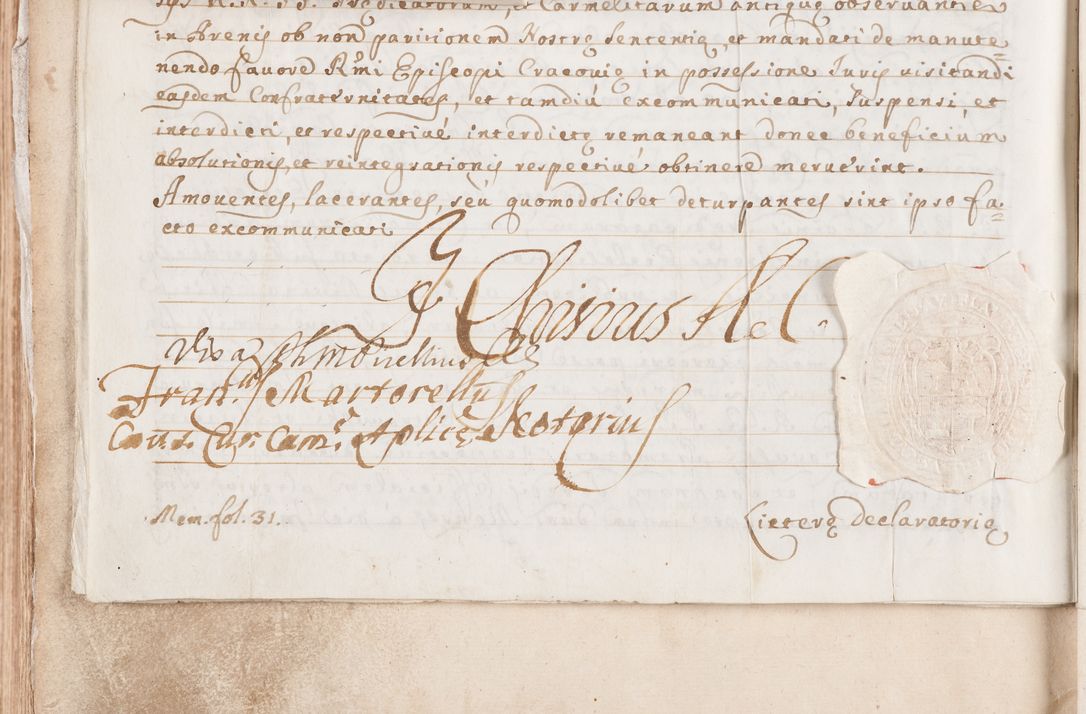 ips R.R. PP. Predicatorum, et Carmelitarum antiquę observantię
in brenis ob non paritionem Nostrę sententię, et mandati de manute=
nendo favore Rmi Episcopi Cracovię in possessione Iuris visitandi
easdem Confraternitates, et tamdiù excommunicati, suspensi, et
interdicti, et respectivé interdictę remaneant donec beneficium
absolutionis, et reintegrationis respectivé obtinere meruerint.
Amoventes, lacerantes, seù quomodolibet deturpantes sint ipso fa=
cto excommunicati
F Chisius A. C.
Visa
Fran.cus Martorellus
Cur. Cam. Aplicę Notarius
Mem. fol. 31.
Litterę declaratorię